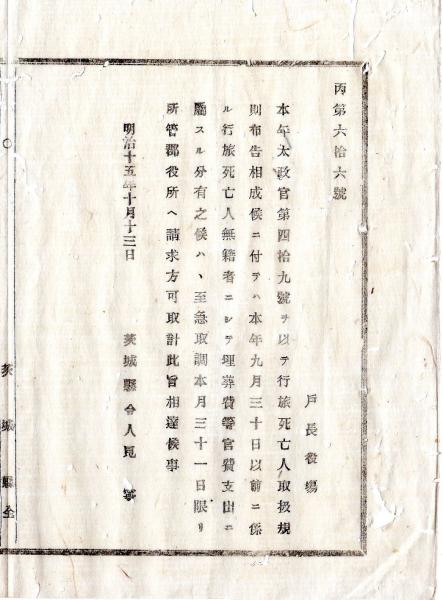 丙第六拾六號
戸長役場
本年太政官第四拾九號ヲ以テ行旅死亡人取扱規
則布告相成候ニ付テハ本年九月三十日以前ニ係
ル行旅死亡人無籍者ニシテ埋葬費等官費支出ニ
屬スル分有之候ハヽ至急取調本月三十一日限リ
所管郡役所ヘ請求方可取計此旨相達候事
明治十五年十月十三日
茨城縣令人見 寧
茨城縣令